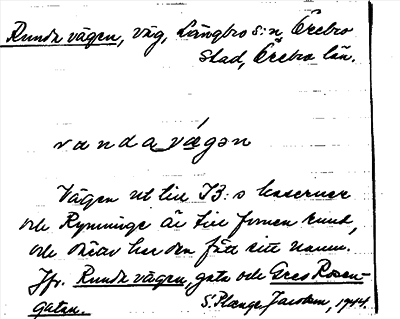 Runda vägen, väg, Längbro s:n, Örebro
stad, Örebro län.
r u n d a v ǽ g ə n
Vägen ut till I3:s kaserner
och Rynninge är till formen rund,
och därav har den fått sitt namn.
Jfr. Runda vägen, gata och Gred Rosen-
gatan.
S. Plange Jacobson, 1944.